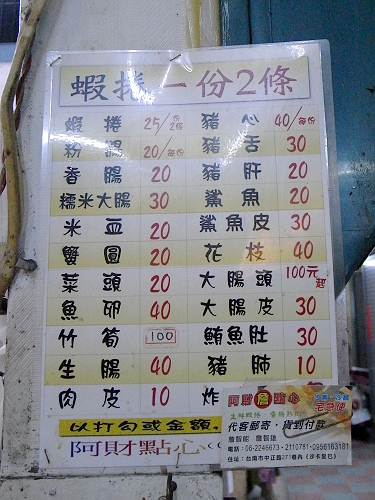 蝦捲一份2條
蝦捲 25/份2條 豬心 40/每份
粉腸 20/每份 豬舌 30
香腸 20 豬肝 20
糯米大腸 30 鯊魚 20
米血 20 鯊魚皮 30
蟹圓 20 花枝 40
菜頭 20 大腸頭 100元起
魚卵 40 大腸皮 30
竹筍 100 鮪魚肚 30
生腸 40 豬肺 10
肉皮 10 炸
以打勾或金額
阿財點心
阿財點心
代客郵寄・貨到付款
詹智能 詹智雄
電話：06-2246673・2110781・0956163181
住址：台南市中正路271巷內（沙卡里巴）